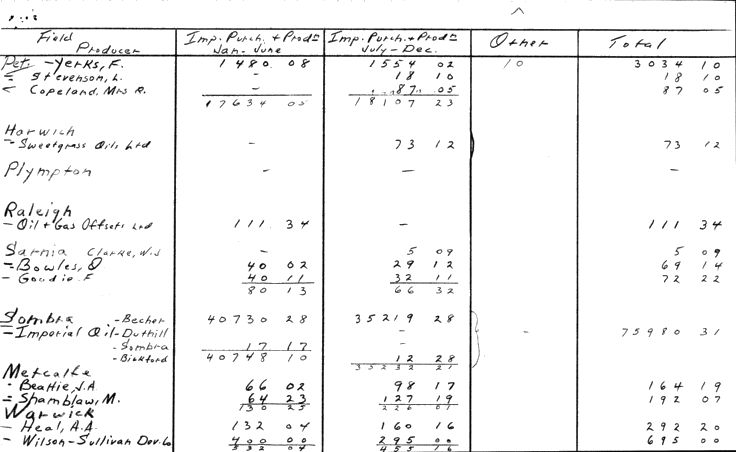 Field Producer Imp. Purch. + Prodn Jan-June Imp. Purch. + Prodn July-Dec. Other Total
Pet. - Yerks, F. 1480 08 1554 02 10 3034 10
= Stevenson, L. - 18 10 18 10
< Copeland. Mrs R. - 87 05 87 05
17634 05 18107 23
Harwich
- Sweetgrass Oils Ltd - 73 12 73 12
Plympton - - -
Raleigh
- Oil + Gas Offsets Ltd 111 34 - 111 34
Sarnia Clarke, W.J - 5 09 5 09
- Bowles, O 40 02 29 12 69 14
- Goodie F 40 11 32 11 72 22
80 13 66 32
Sombra - Becher 40730 28 35219 28
- Imperial Oil - Duthill - - 75980 31
- Sombra 17 17 -
- Bickford 40748 10 12 28
35232 21
Metcalfe
- Beattie, J.A. 66 02 98 17 164 19
= Shamblaw, M. 64 23 127 19 192 07
130 25 226 01
Warwick
- Heal, A.A. 132 04 160 16 292 20
- Wilson-Sullivan Dev. Co 400 00 295 00 695 00
532 04 455 16